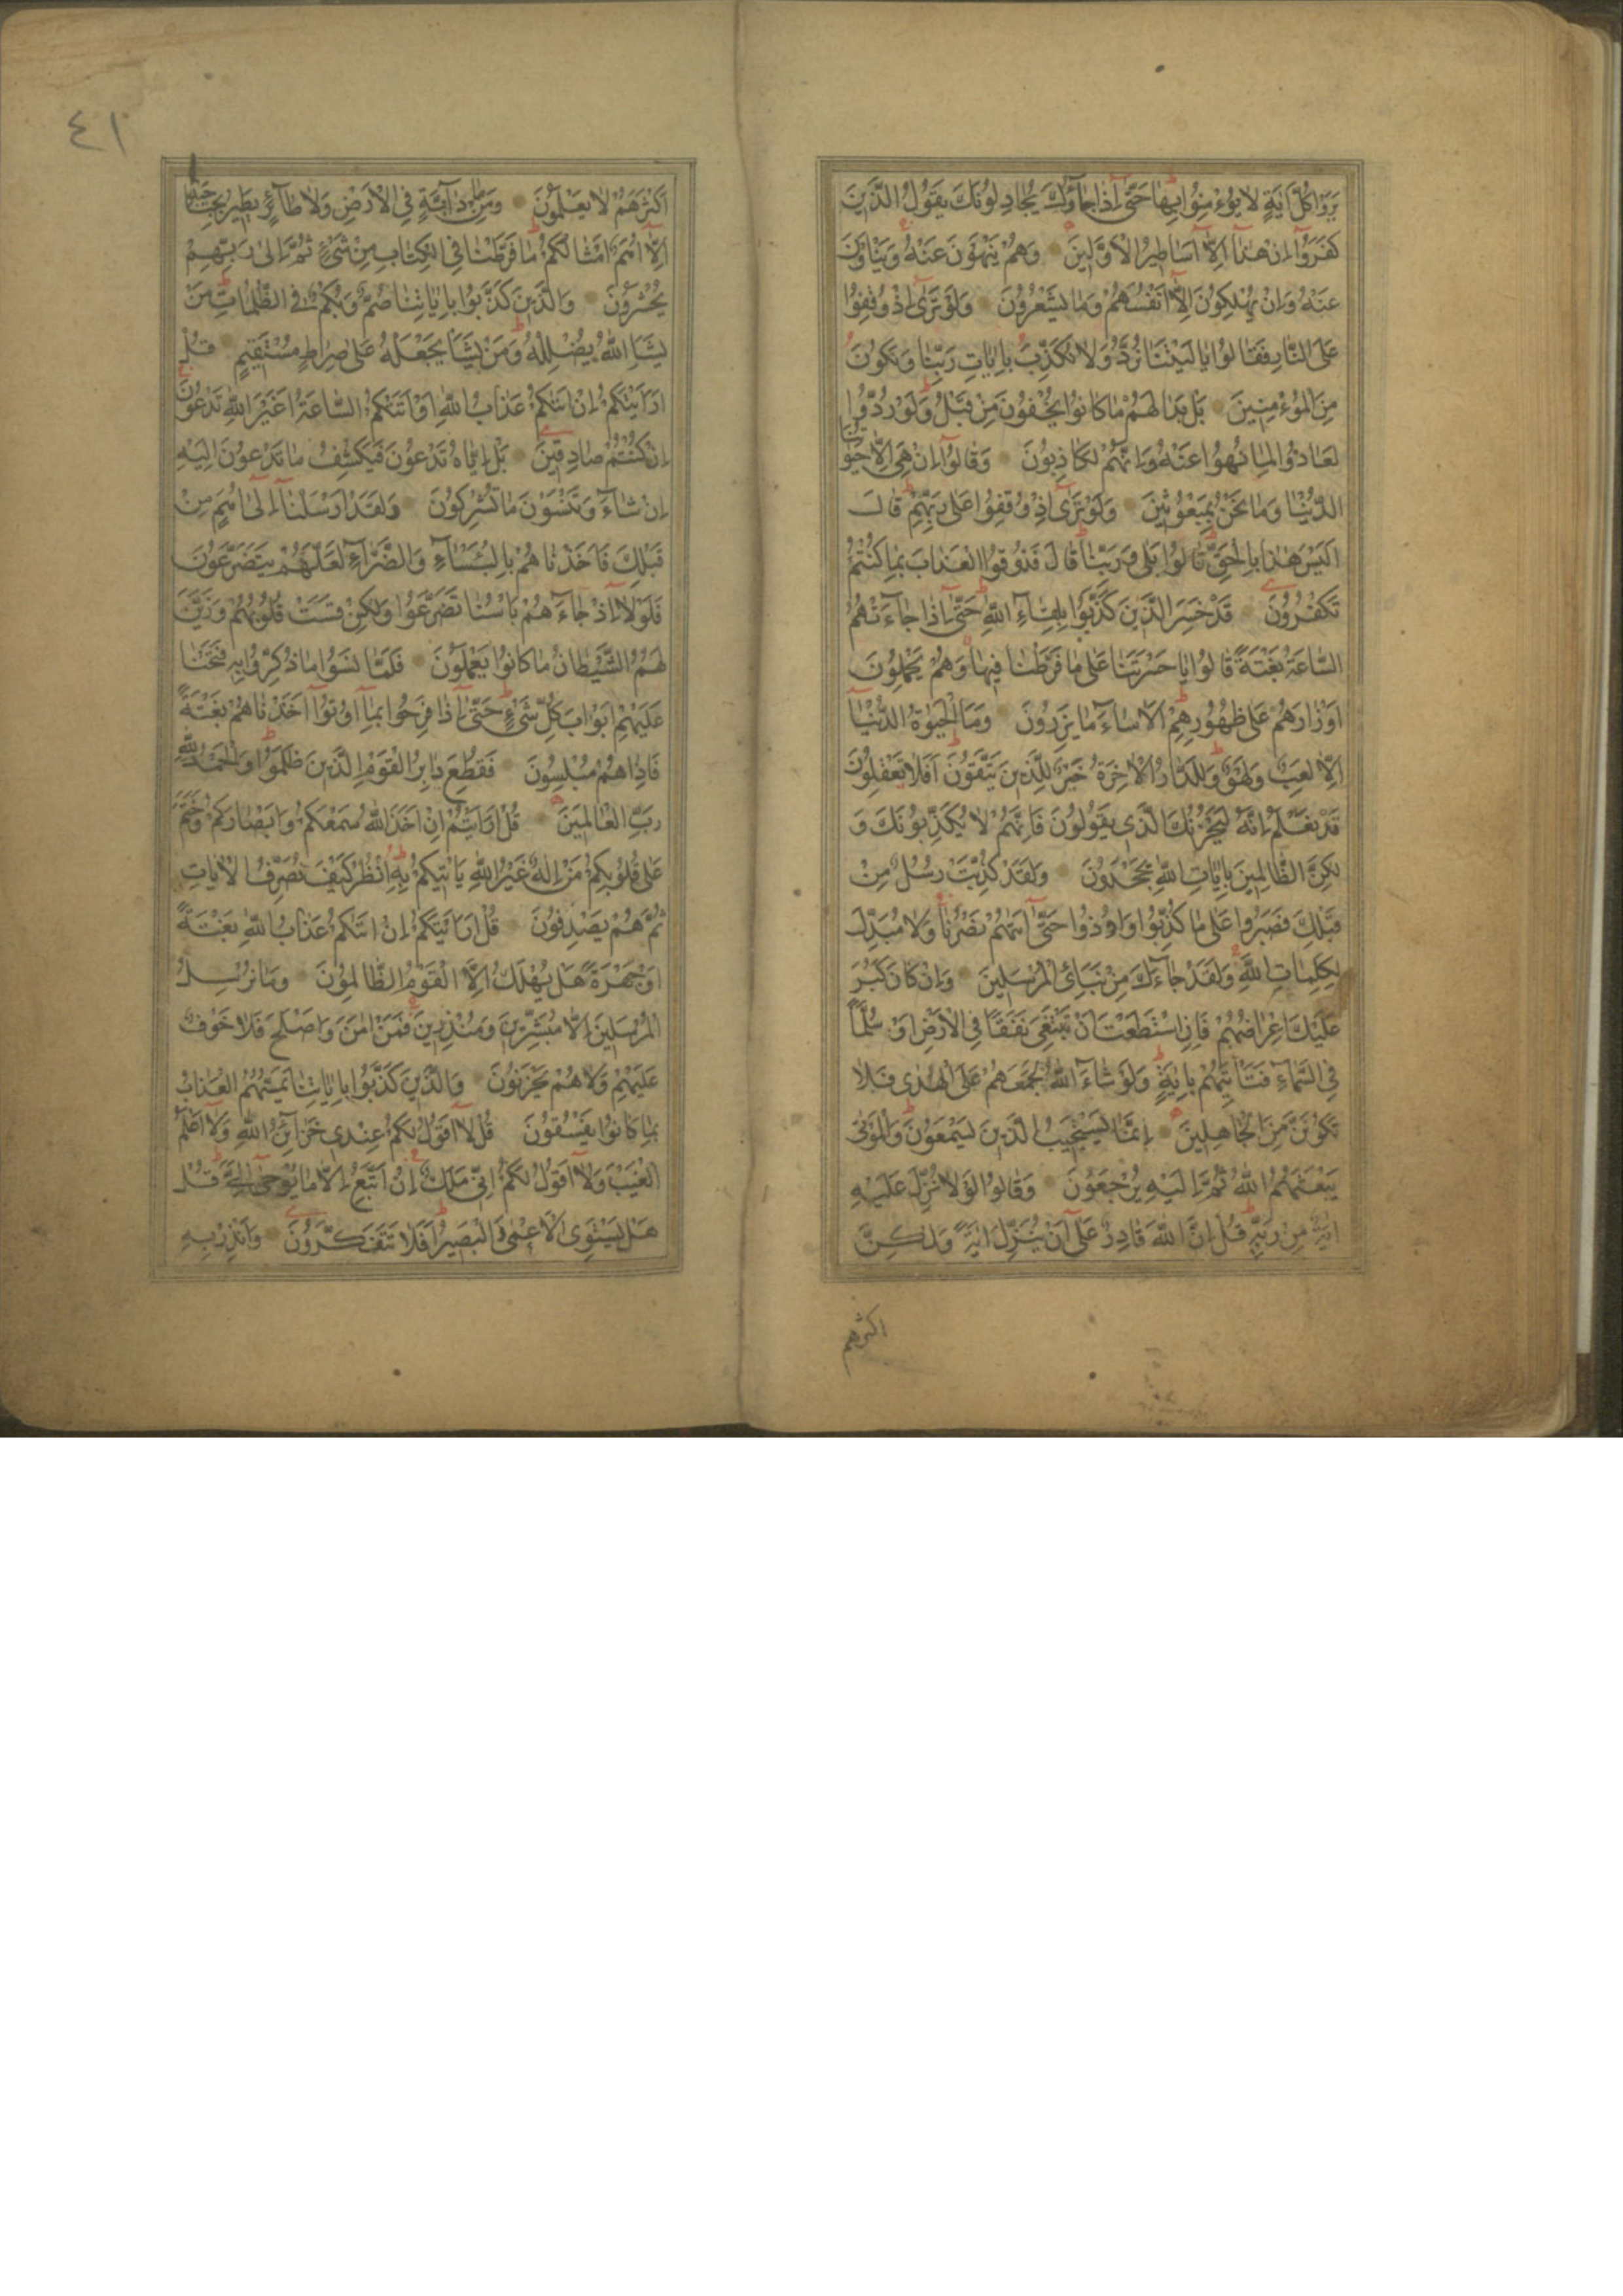 يَرَوْا كُلَّ اٰيَةٍ لَا يُؤْمِنُوا بِهَا حَتّٰى اِذَا جَاؤُكَ يُجَادِلُونَكَ يَقُولُ الَّذِينَ
كَفَرُوا اِنْ هٰذَا اِلَّا اَسَاطِيرُ الْاَوَّلِينَ وَهُمْ يَنْهَوْنَ عَنْهُ وَيَنْأَوْنَ
عَنْهُ وَاِنْ يُهْلِكُونَ اِلَّا اَنْفُسَهُمْ وَمَا يَشْعُرُونَ وَلَوْ تَرٰى اِذْ وُقِفُوا
عَلَى النَّارِ فَقَالُوا يَا لَيْتَنَا نُرَدُّ وَلَا نُكَذِّبَ بِاٰيَاتِ رَبِّنَا وَنَكُونَ
مِنَ الْمُؤْمِنِينَ بَلْ بَدَا لَهُمْ مَا كَانُوا يُخْفُونَ مِنْ قَبْلُ وَلَوْ رُدُّوا
لَعَادُوا لِمَا نُهُوا عَنْهُ وَاِنَّهُمْ لَكَاذِبُونَ وَقَالُوا اِنْ هِيَ اِلَّا حَيَاتُنَا
الدُّنْيَا وَمَا نَحْنُ بِمَبْعُوثِينَ وَلَوْ تَرٰى اِذْ وُقِفُوا عَلٰى رَبِّهِمْ قَالَ
اَلَيْسَ هٰذَا بِالْحَقِّ قَالُوا بَلٰى وَرَبِّنَا قَالَ فَذُوقُوا الْعَذَابَ بِمَا كُنْتُمْ
تَكْفُرُونَ قَدْ خَسِرَ الَّذِينَ كَذَّبُوا بِلِقَاءِ اللّٰهِ حَتّٰى اِذَا جَاءَتْهُمُ
السَّاعَةُ بَغْتَةً قَالُوا يَا حَسْرَتَنَا عَلٰى مَا فَرَّطْنَا فِيهَا وَهُمْ يَحْمِلُونَ
اَوْزَارَهُمْ عَلٰى ظُهُورِهِمْ اَلَا سَاءَ مَا يَزِرُونَ وَمَا الْحَيٰوةُ الدُّنْيَا
اِلَّا لَعِبٌ وَلَهْوٌ وَلَلدَّارُ الْاٰخِرَةُ خَيْرٌ لِلَّذِينَ يَتَّقُونَ اَفَلَا يَعْقِلُونَ
قَدْ نَعْلَمُ اِنَّهُ لَيَحْزُنُكَ الَّذِي يَقُولُونَ فَاِنَّهُمْ لَا يُكَذِّبُونَكَ وَ
لٰكِنَّ الظَّالِمِينَ بِاٰيَاتِ اللّٰهِ يَجْحَدُونَ وَلَقَدْ كُذِّبَتْ رُسُلٌ مِنْ
قَبْلِكَ فَصَبَرُوا عَلٰى مَا كُذِّبُوا وَاُوذُوا حَتّٰى اَتٰيهُمْ نَصْرُنَا وَلَا مُبَدِّلَ
لِكَلِمَاتِ اللّٰهِ وَلَقَدْ جَاءَكَ مِنْ نَبَائِ الْمُرْسَلِينَ وَاِنْ كَانَ كَبُرَ
عَلَيْكَ اِعْرَاضُهُمْ فَاِنِ اسْتَطَعْتَ اَنْ تَبْتَغِيَ نَفَقًا فِي الْاَرْضِ اَوْ سُلَّمًا
فِي السَّمَاءِ فَتَأْتِيَهُمْ بِاٰيَةٍ وَلَوْ شَاءَ اللّٰهُ لَجَمَعَهُمْ عَلَى الْهُدٰى فَلَا
تَكُونَنَّ مِنَ الْجَاهِلِينَ اِنَّمَا يَسْتَجِيبُ الَّذِينَ يَسْمَعُونَ وَالْمَوْتٰى
يَبْعَثُهُمُ اللّٰهُ ثُمَّ اِلَيْهِ يُرْجَعُونَ وَقَالُوا لَوْلَا نُزِّلَ عَلَيْهِ
اٰيَةٌ مِنْ رَبِّهِ قُلْ اِنَّ اللّٰهَ قَادِرٌ عَلٰى اَنْ يُنَزِّلَ اٰيَةً وَلٰكِنَّ
اكثرهم
٤١
اَكْثَرَهُمْ لَا يَعْلَمُونَ وَمَا مِنْ دَابَّةٍ فِي الْاَرْضِ وَلَا طَائِرٍ يَطِيرُ بِجَنَاحَيْهِ
اِلَّا اُمَمٌ اَمْثَالُكُمْ مَا فَرَّطْنَا فِي الْكِتَابِ مِنْ شَيْءٍ ثُمَّ اِلٰى رَبِّهِمْ
يُحْشَرُونَ وَالَّذِينَ كَذَّبُوا بِاٰيَاتِنَا صُمٌّ وَبُكْمٌ فِي الظُّلُمَاتِ مَنْ
يَشَاِ اللّٰهُ يُضْلِلْهُ وَمَنْ يَشَأْ يَجْعَلْهُ عَلٰى صِرَاطٍ مُسْتَقِيمٍ قُلْ
اَرَاَيْتَكُمْ اِنْ اَتٰيكُمْ عَذَابُ اللّٰهِ اَوْ اَتَتْكُمُ السَّاعَةُ اَغَيْرَ اللّٰهِ تَدْعُونَ
اِنْ كُنْتُمْ صَادِقِينَ بَلْ اِيَّاهُ تَدْعُونَ فَيَكْشِفُ مَا تَدْعُونَ اِلَيْهِ
اِنْ شَاءَ وَتَنْسَوْنَ مَا تُشْرِكُونَ وَلَقَدْ اَرْسَلْنَا اِلٰى اُمَمٍ مِنْ
قَبْلِكَ فَاَخَذْنَاهُمْ بِالْبَأْسَاءِ وَالضَّرَّاءِ لَعَلَّهُمْ يَتَضَرَّعُونَ
فَلَوْلَا اِذْ جَاءَهُمْ بَأْسُنَا تَضَرَّعُوا وَلٰكِنْ قَسَتْ قُلُوبُهُمْ وَزَيَّنَ
لَهُمُ الشَّيْطَانُ مَا كَانُوا يَعْمَلُونَ فَلَمَّا نَسُوا مَا ذُكِّرُوا بِهِ فَتَحْنَا
عَلَيْهِمْ اَبْوَابَ كُلِّ شَيْءٍ حَتّٰى اِذَا فَرِحُوا بِمَا اُوتُوا اَخَذْنَاهُمْ بَغْتَةً
فَاِذَا هُمْ مُبْلِسُونَ فَقُطِعَ دَابِرُ الْقَوْمِ الَّذِينَ ظَلَمُوا وَالْحَمْدُ لِلّٰهِ
رَبِّ الْعَالَمِينَ قُلْ اَرَاَيْتُمْ اِنْ اَخَذَ اللّٰهُ سَمْعَكُمْ وَاَبْصَارَكُمْ وَخَتَمَ
عَلٰى قُلُوبِكُمْ مَنْ اِلٰهٌ غَيْرُ اللّٰهِ يَأْتِيكُمْ بِهِ اُنْظُرْ كَيْفَ نُصَرِّفُ الْاٰيَاتِ
ثُمَّ هُمْ يَصْدِفُونَ قُلْ اَرَاَيْتَكُمْ اِنْ اَتٰيكُمْ عَذَابُ اللّٰهِ بَغْتَةً
اَوْ جَهْرَةً هَلْ يُهْلَكُ اِلَّا الْقَوْمُ الظَّالِمُونَ وَمَا نُرْسِلُ
الْمُرْسَلِينَ اِلَّا مُبَشِّرِينَ وَمُنْذِرِينَ فَمَنْ اٰمَنَ وَاَصْلَحَ فَلَا خَوْفٌ
عَلَيْهِمْ وَلَا هُمْ يَحْزَنُونَ وَالَّذِينَ كَذَّبُوا بِاٰيَاتِنَا يَمَسُّهُمُ الْعَذَابُ
بِمَا كَانُوا يَفْسُقُونَ قُلْ لَا اَقُولُ لَكُمْ عِنْدِي خَزَائِنُ اللّٰهِ وَلَا اَعْلَمُ
الْغَيْبَ وَلَا اَقُولُ لَكُمْ اِنِّي مَلَكٌ اِنْ اَتَّبِعُ اِلَّا مَا يُوحٰى اِلَيَّ قُلْ
هَلْ يَسْتَوِي الْاَعْمٰى وَالْبَصِيرُ اَفَلَا تَتَفَكَّرُونَ وَاَنْذِرْ بِهِ